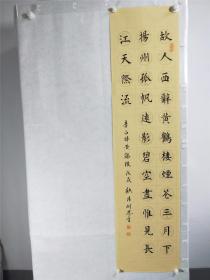 故人西辭黃鶴樓煙花三月下
揚州孤帆遠影碧空盡惟見長
江天際流
李白詩黃鶴樓戊戌秋